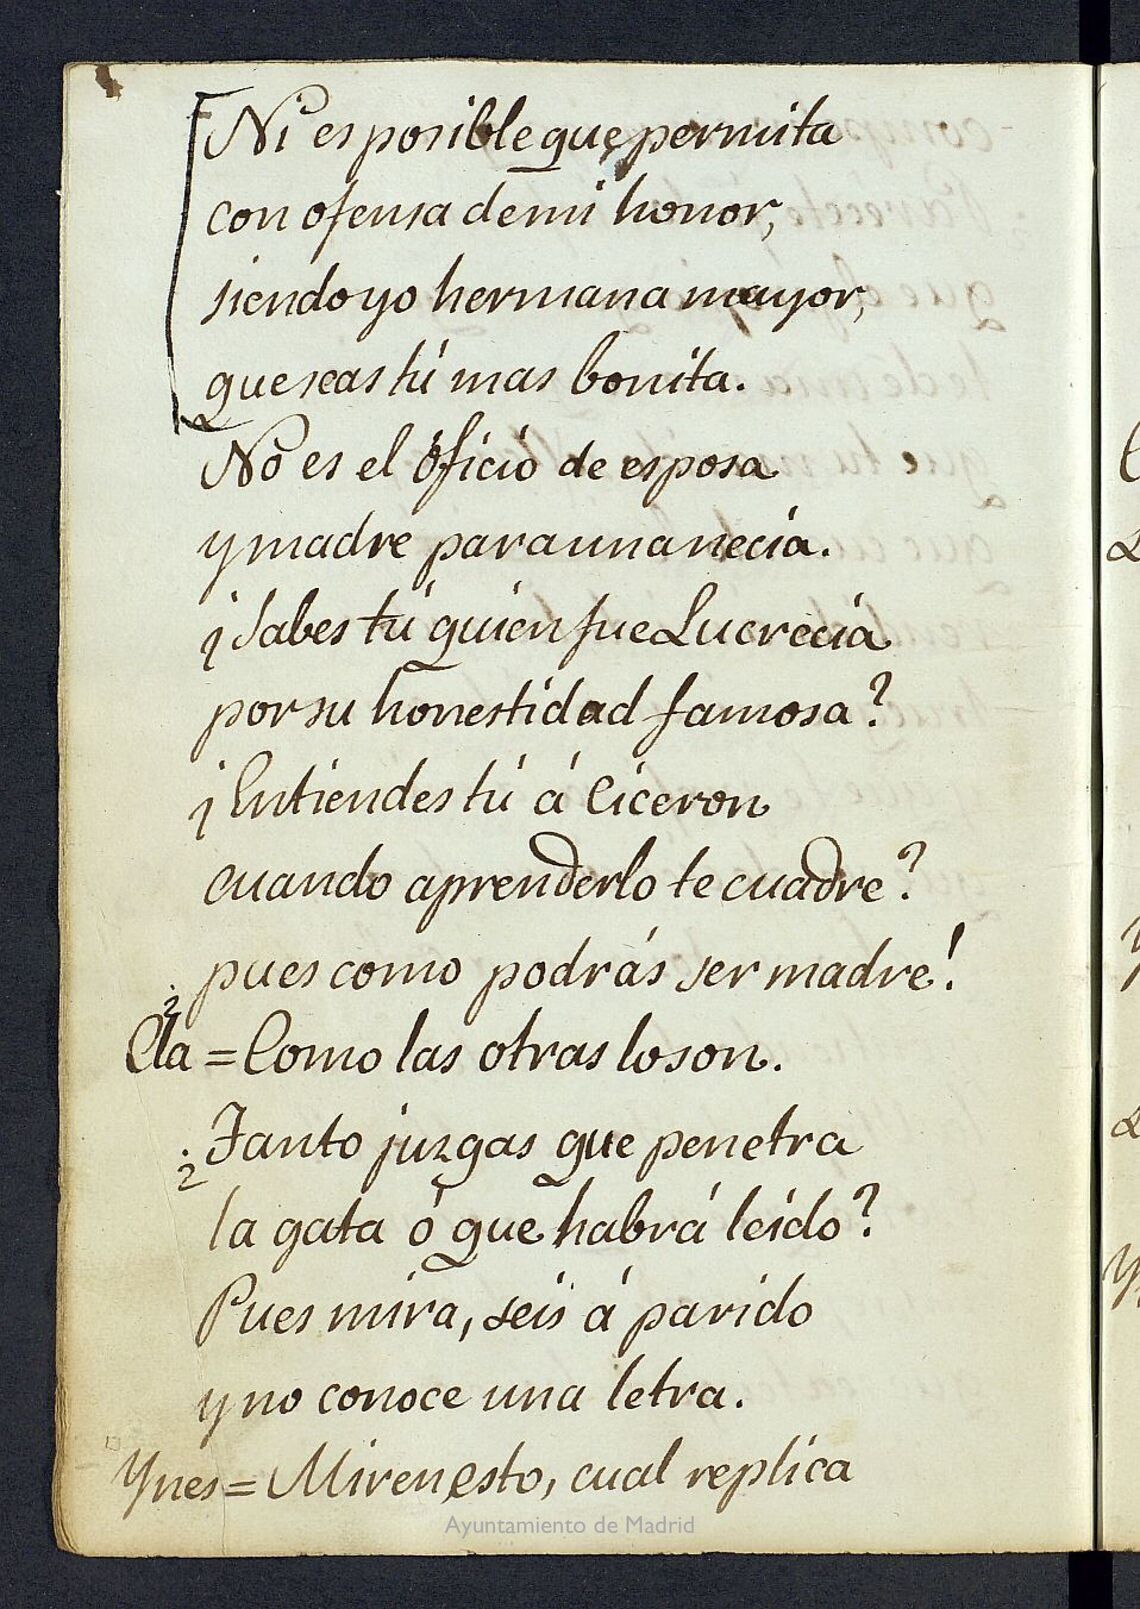 Ni es posible que permita
con ofensa de mi honor,
siendo yo hermana mayor,
que seas tú mas bonita.
No es el oficio de esposa
y madre para una necia.
¿Sabes tú quien fue Lucrecia
por su honestidad famosa?
¿Entiendes tú á Ciceron
cuando aprenderlo te cuadre?
pues como podrás ser madre!
Cla = Como las otras lo son.
¿Tanto juzgas que penetra
la gata ó que habrá leido?
Pues mira, seis á parido
y no conoce una letra.
Ynes = Miren esto, cual replica
Ayuntamiento de Madrid